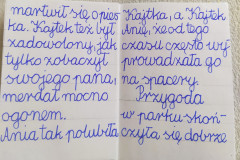 martwił się o pies
ka. Kajtek też był
zadowolony, jak
tylko zobaczył
swojego pana,
merdał mocno
ogonem.
Ania tak polubiła
Kajtka, a Kajtek
Anię, że od tego
czasu często wy
prowadzała go
na spacery.
Przygoda
w parku skoń-
czyła się dobrze